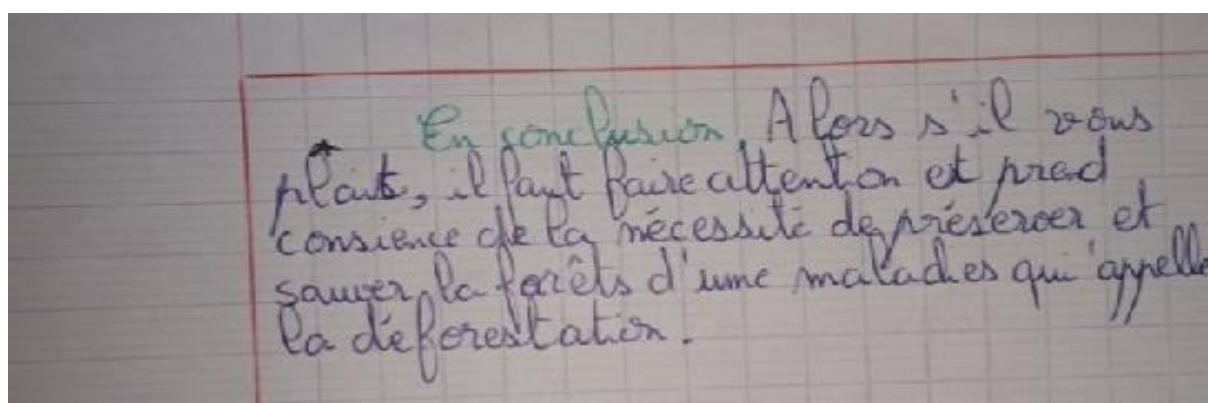 En conclusion, Alors s'il vous
plaits, il faut faire attention et prend
consience de la nécessité de préserver et
sauver la forêts d'une maladies qui appelle
la déforestation.